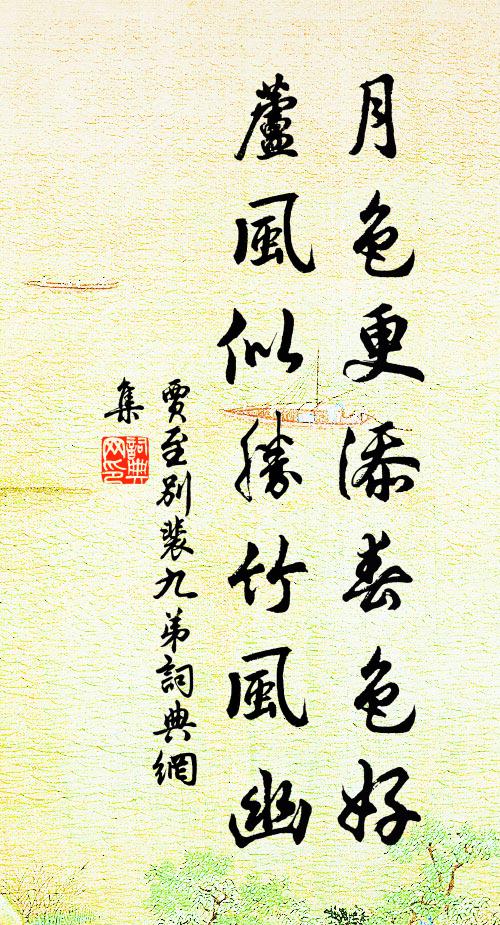 月色更添春色好
蘆風似勝竹風幽
賈至別裴九弟詞典網
集
詞典网印